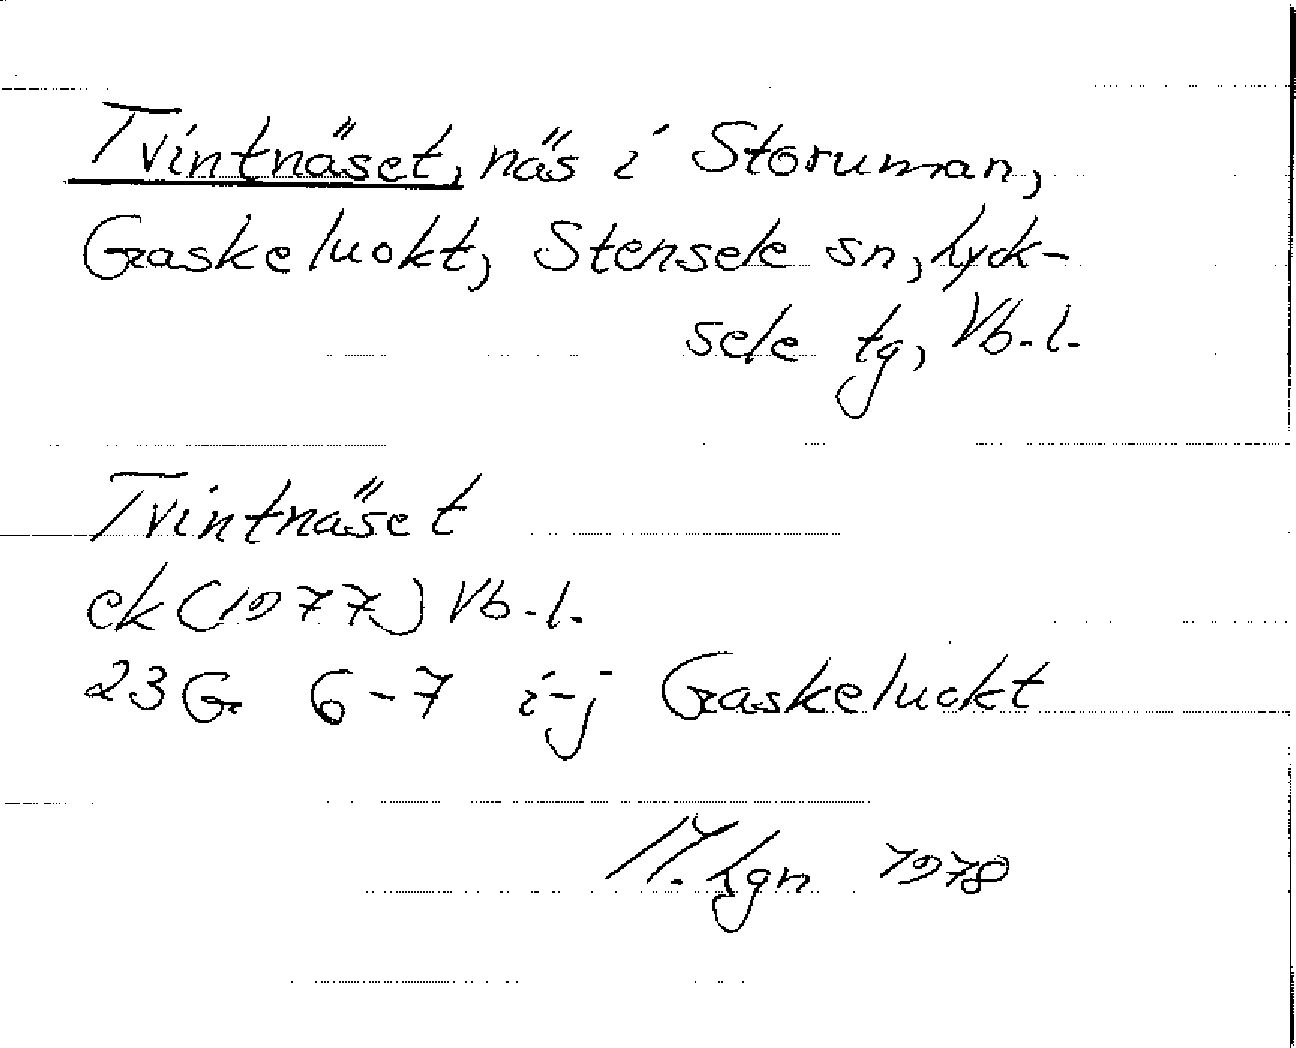 Tvintnäset, näs i Storuman,
Gaskeluokt, Stensele sn, Lyck-
sele tg, Vb. l.
Tvintnäset
ek (1977) Vb. l.
23 G 6-7 i-j Gaskeluokt
M. Lgn 1978